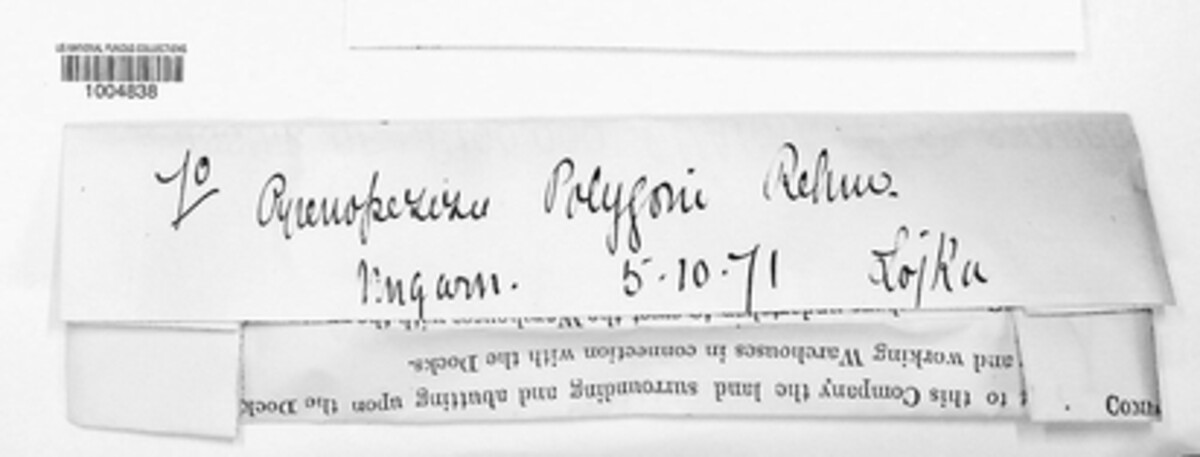 US NATIONAL FUNGUS COLLECTIONS
1004838
70 Pyrenopeziza Polygoni Rehm.
Ungarn. 5.10.71 Lojka
and working Warehouses in connection with the Docks.
to this Company the land surrounding and abutting upon the Dock